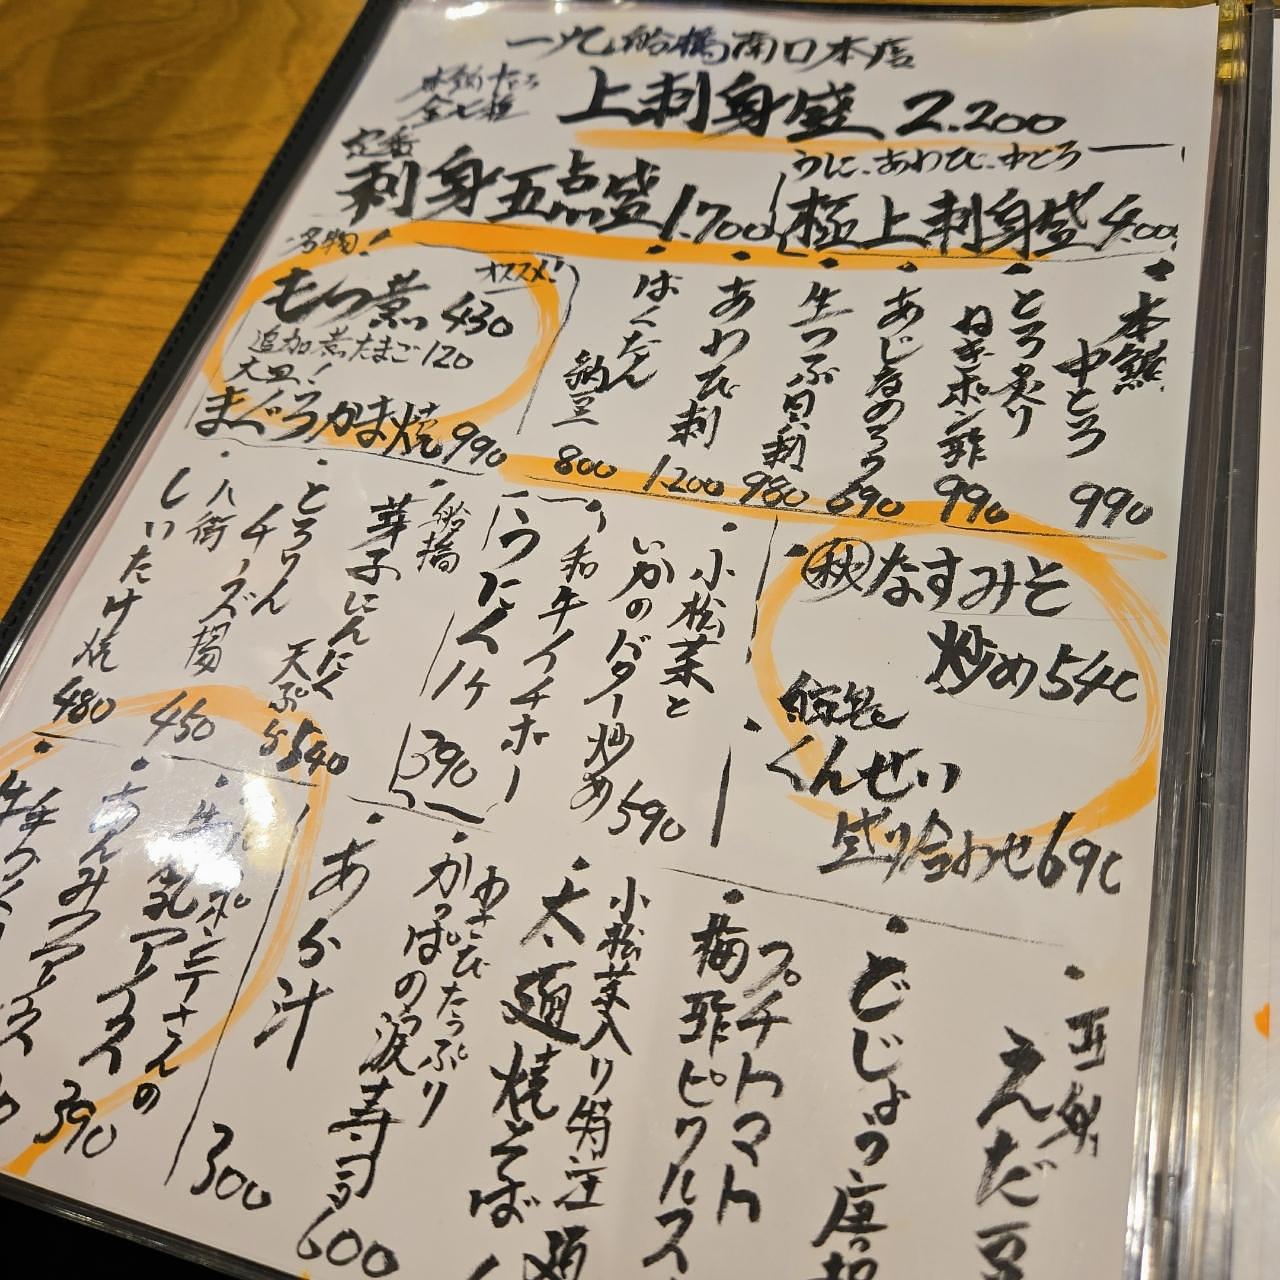 一九 船橋南口本店
本鮪中とろ
全七種
上刺身盛 2.200
定番
刺身五点盛 1.700
うに、あわび、中とろ
極上刺身盛 4.00
名物!
オススメ!
もつ煮 430
追加煮たまご120
大皿!
まぐろかま焼 990
・本鮪
中とろ
990
・とろ炙り
ねぎポン酢
990
・あじなめろう
690
・生つぶ貝刺
980
・あわび刺
1.200
・ばくだん
納豆
800
・㊙なすみそ
炒め 540
くんせい
盛り合わせ 690
・小松菜と
いかのバター炒め
590
・和牛イチボー
にんにく
390
・船橋
芽子にんにく
天ぷら
540
・とろりん
チーズ揚
450
・八街
しいたけ焼
480
えだ豆
・どじょう唐
・プチトマト
梅酢ピクルス
小松菜入り特注
・太麺焼そば
・わさびたっぷり
かっぱの涙寿司
600
・あら汁
300
牛乳アイス
・あんみつアイス
390